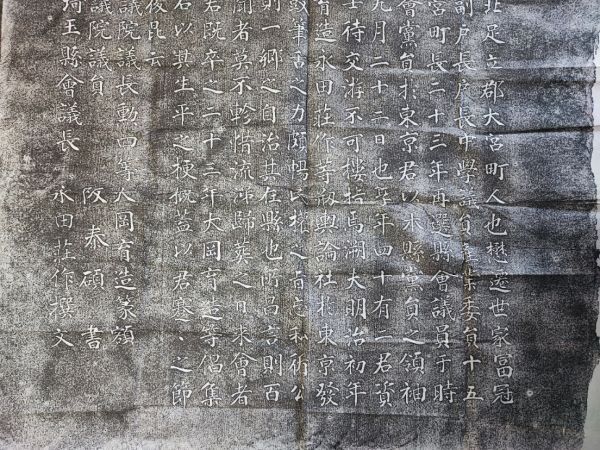 北足立郡大宮町人也懋遷世家富冠
副戸長戸長中學議員業委員十五
宮町長二十三年再選縣會議員于時
會黨員於東京君以本縣黨員之領袖
九月二十三日也享年四十有二君資
士待交游不可樓指焉溯夫明治初年
育造永田荘作等級輿論社於東京發
筆舌之力頗暢民權之旨私行公
則一郷之自治其在縣也所昌言則百
聞者莫不軫惜流涕歸葬之日來會者
君既卒之二十三年大岡育造等倡集
君以其生平之梗概蓋以君蹇〻之節
後昆云
議院議長勳四等大岡育造篆額
議院議員 阪泰碩書
埼玉縣會議長 永田荘作撰文